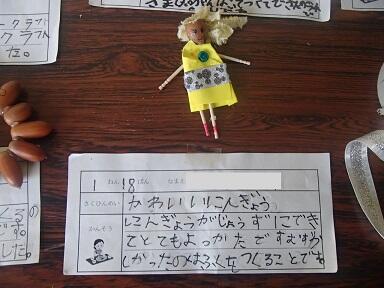 ークラフト
クラフト
た。
1 ねん 18 ばん なまえ
さくひんめい
かわいいにんぎょう
かんそう
にんぎょうがじょうずにでき
てとてもよかたですむずか
しかったのはふくをつくることです。
くるの
です。
した。